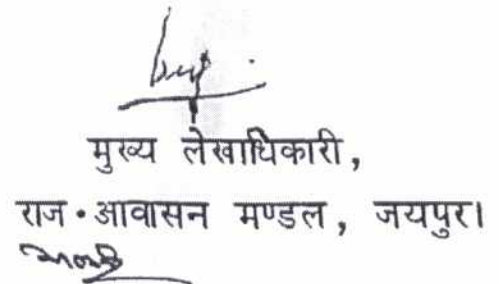 मुख्य लेखाधिकारी,
राज॰ आवासन मण्डल, जयपुर।